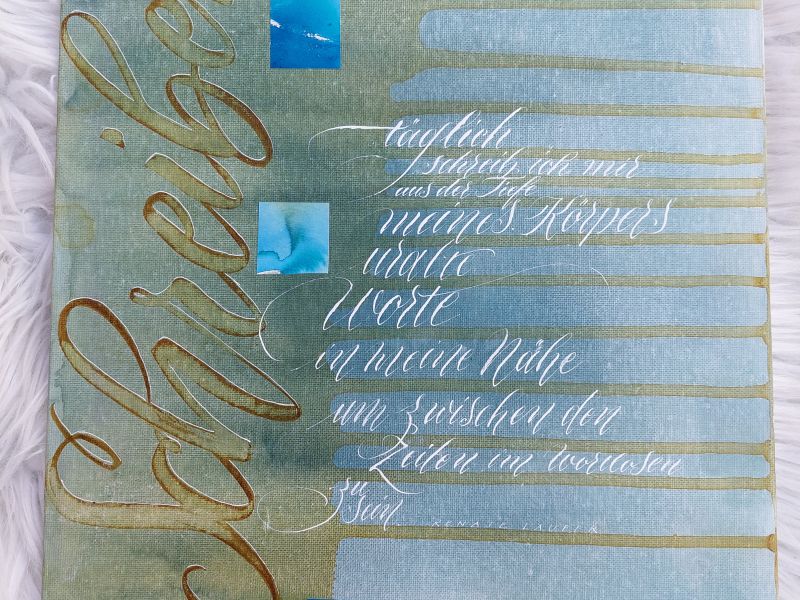 Schreibe
täglich
schreib ich mir
aus der Tiefe
meines Körpers
uralte
Worte
in meine Nähe
um zwischen den
Zeilen im wortlosen
zu
sein
RENATE LAUFER